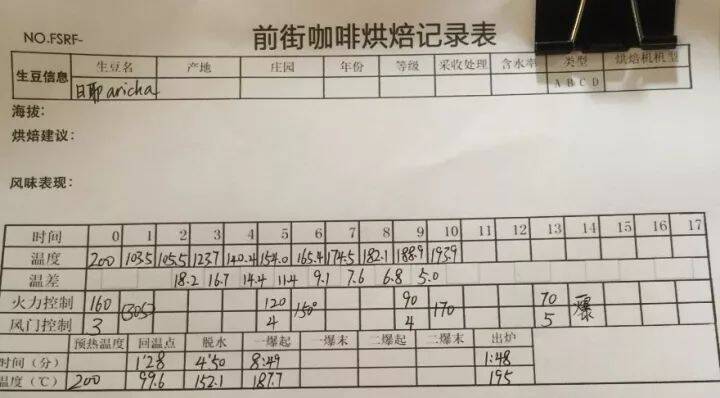 NO.FSRF- 前街咖啡烘焙记录表
生豆信息 生豆名 产地 庄园 年份 等级 采收处理 含水率 类型 烘焙机机型
日耶aricha A B C D
海拔:
烘焙建议:
风味表现:
时间 0 1 2 3 4 5 6 7 8 9 10 11 12 13 14 15 16 17
温度 200 103.5 105.5 123.7 140.4 154.0 165.4 174.5 182.1 188.9 193.9
温差 18.2 16.7 14.4 11.4 9.1 7.6 6.8 5.0
火力控制 160 120 150° 90 170 70 一爆
风门控制 3 4 4 5
预热温度 回温点 脱水 一爆起 一爆末 二爆起 二爆末 出炉
时间(分) 1'28 4'50 8:49 1:48
温度(℃) 200 99.6 152.1 187.7 195